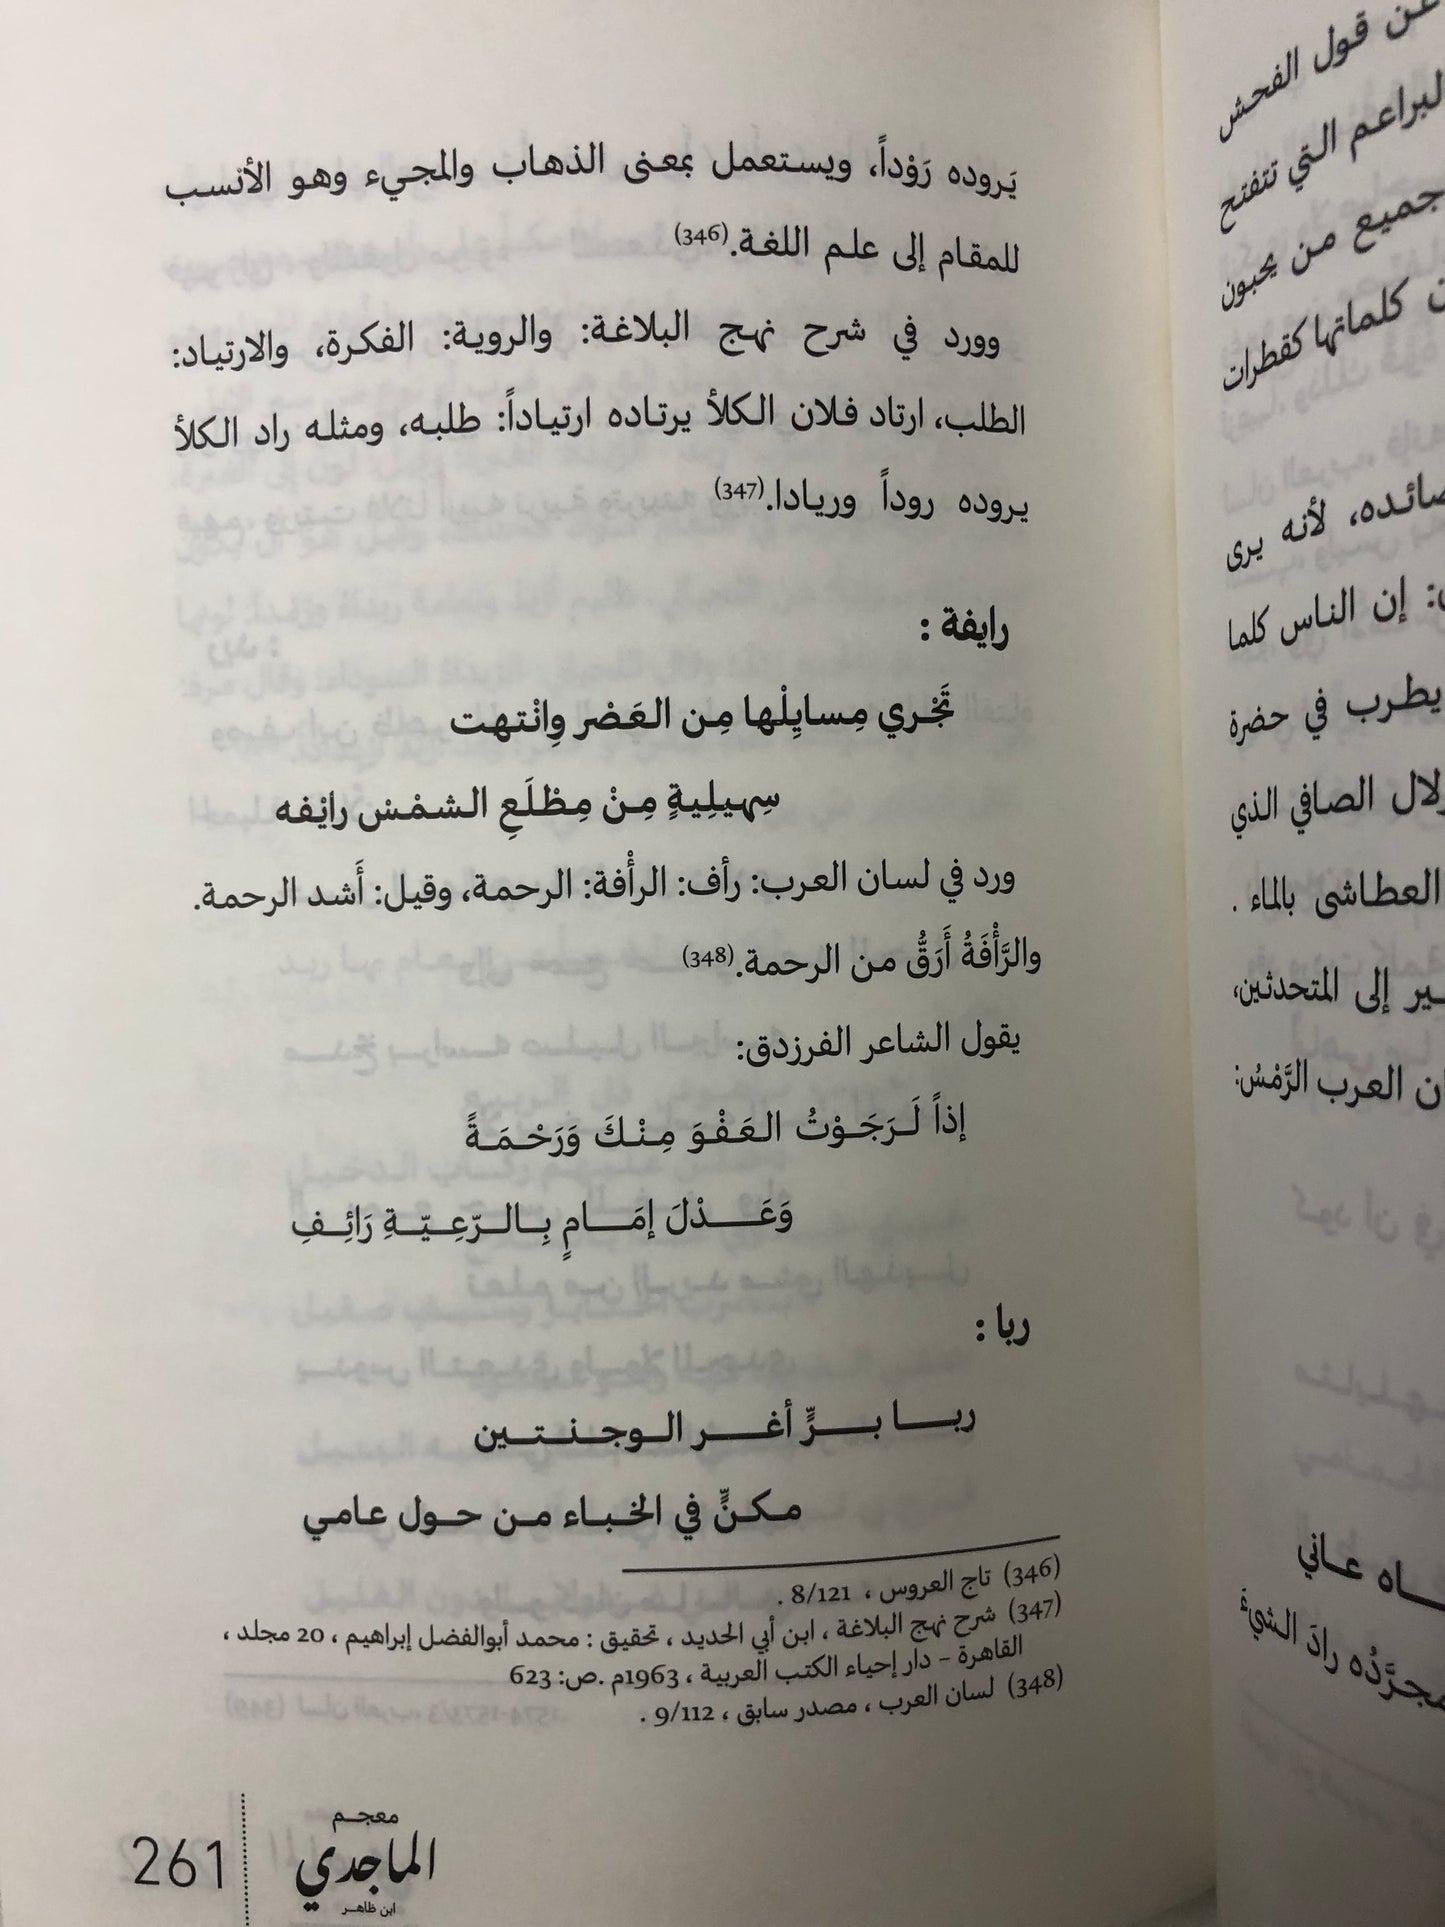 يَروده رَوْداً، ويستعمل بمعنى الذهاب والمجيء وهو الأنسب
للمقام إلى علم اللغة.(346)
وورد في شرح نهج البلاغة: والروية: الفكرة، والارتياد:
الطلب، ارتاد فلان الكلأ يرتاده ارتياداً: طلبه، ومثله راد الكلأ
يروده روداً وريادا.(347)
رايفة :
تَجْري مِسايِلْها مِن العَصْر وِانْتهت
سِهيلِيةٍ مِنْ مِطْلَعِ الشمْسْ رايْفه
ورد في لسان العرب: رأف: الرأْفة: الرحمة، وقيل: أَشد الرحمة.
والرَّأْفَةُ أَرَقُّ من الرحمة.(348)
يقول الشاعر الفرزدق:
إذاً لَرَجَوْتُ العَفْوَ مِنْكَ وَرَحْمَةً
وَعَدْلَ إمَامٍ بِالرّعِيّةِ رَائِفِ
ربا :
ربا برٍّ أغر الوجنتين
مكنٍّ في الخباء من حول عامي
(346) تاج العروس ، 8/121 .
(347) شرح نهج البلاغة ، ابن أبي الحديد ، تحقيق : محمد أبوالفضل إبراهيم ، 20 مجلد ،
القاهرة - دار إحياء الكتب العربية ، 1963م .ص: 623
(348) لسان العرب ، مصدر سابق ، 9/112 .
معجم
الماجدي
ابن ظاهر
261
عن قول الفحش
البراعم التي تتفتح
جميع من يحبون
كلماتها كقطرات
لأنه يرى
إن الناس كلما
يطرب في حضرة
الصافي الذي
العطاشى بالماء .
إلى المتحدثين،
العرب الرَّمْسُ:
عاني
رادَ الشيءَ